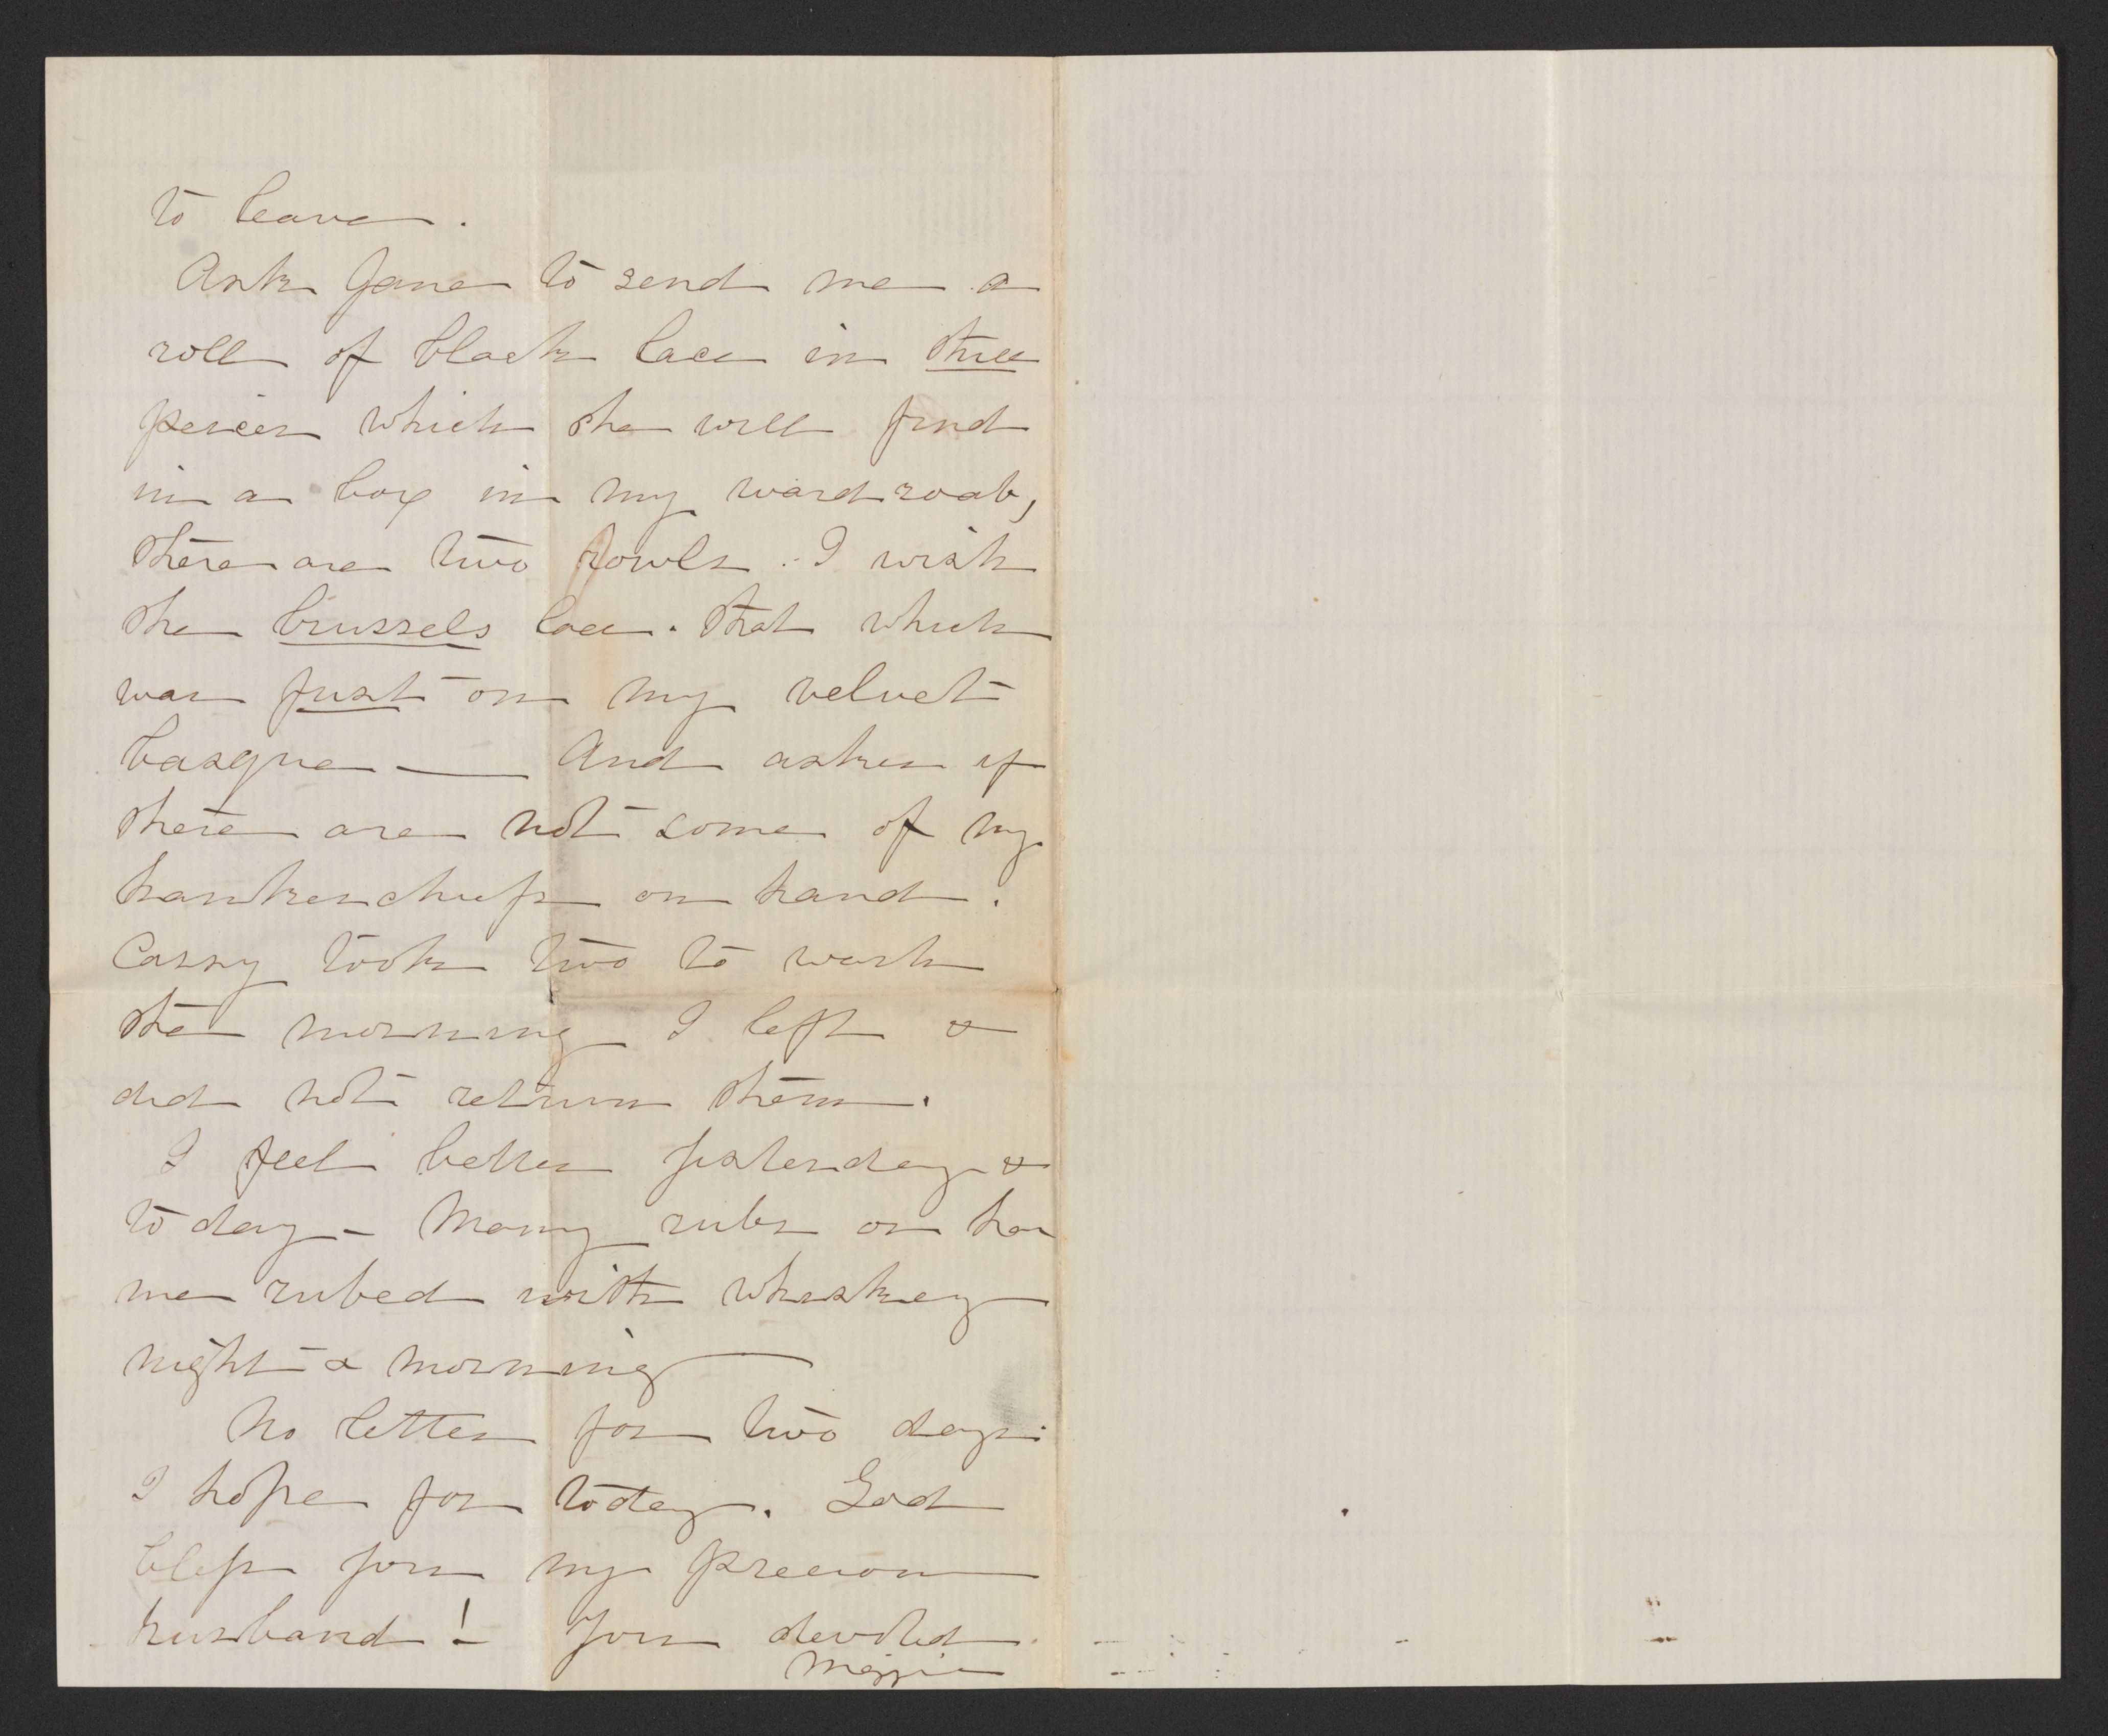 to leave.
Ask Jane to send me a
roll of black lace in three
peices which she will find
in a box in my wardroab,
there are two rowls. I wish
the brussels lace. That which
was first on my velvet
basque — And askes if
there are not some of my
hankerchiefs on hand.
Cassy took two to wash
the morning I left &
did not return them.
I feel better yesterday &
to day — Mary rubs or has
me rubed with whiskey
night & morning —
No letter for two days.
I hope for today. God
bless you my precious
husband! Your devoted
Maggie